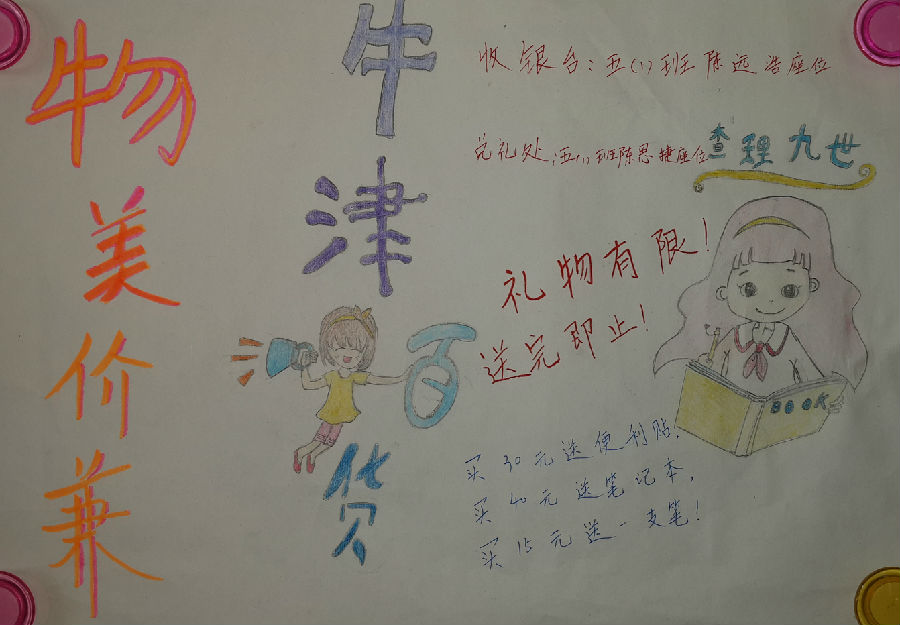 物美价兼
牛津百货
收银台：五(1)班陈远浩座位
兑礼处：五(1)班陈思捷座位
查理九世
礼物有限！
送完即止！
BOOK
买30元送便利贴，
买20元送笔记本，
买15元送一支笔！